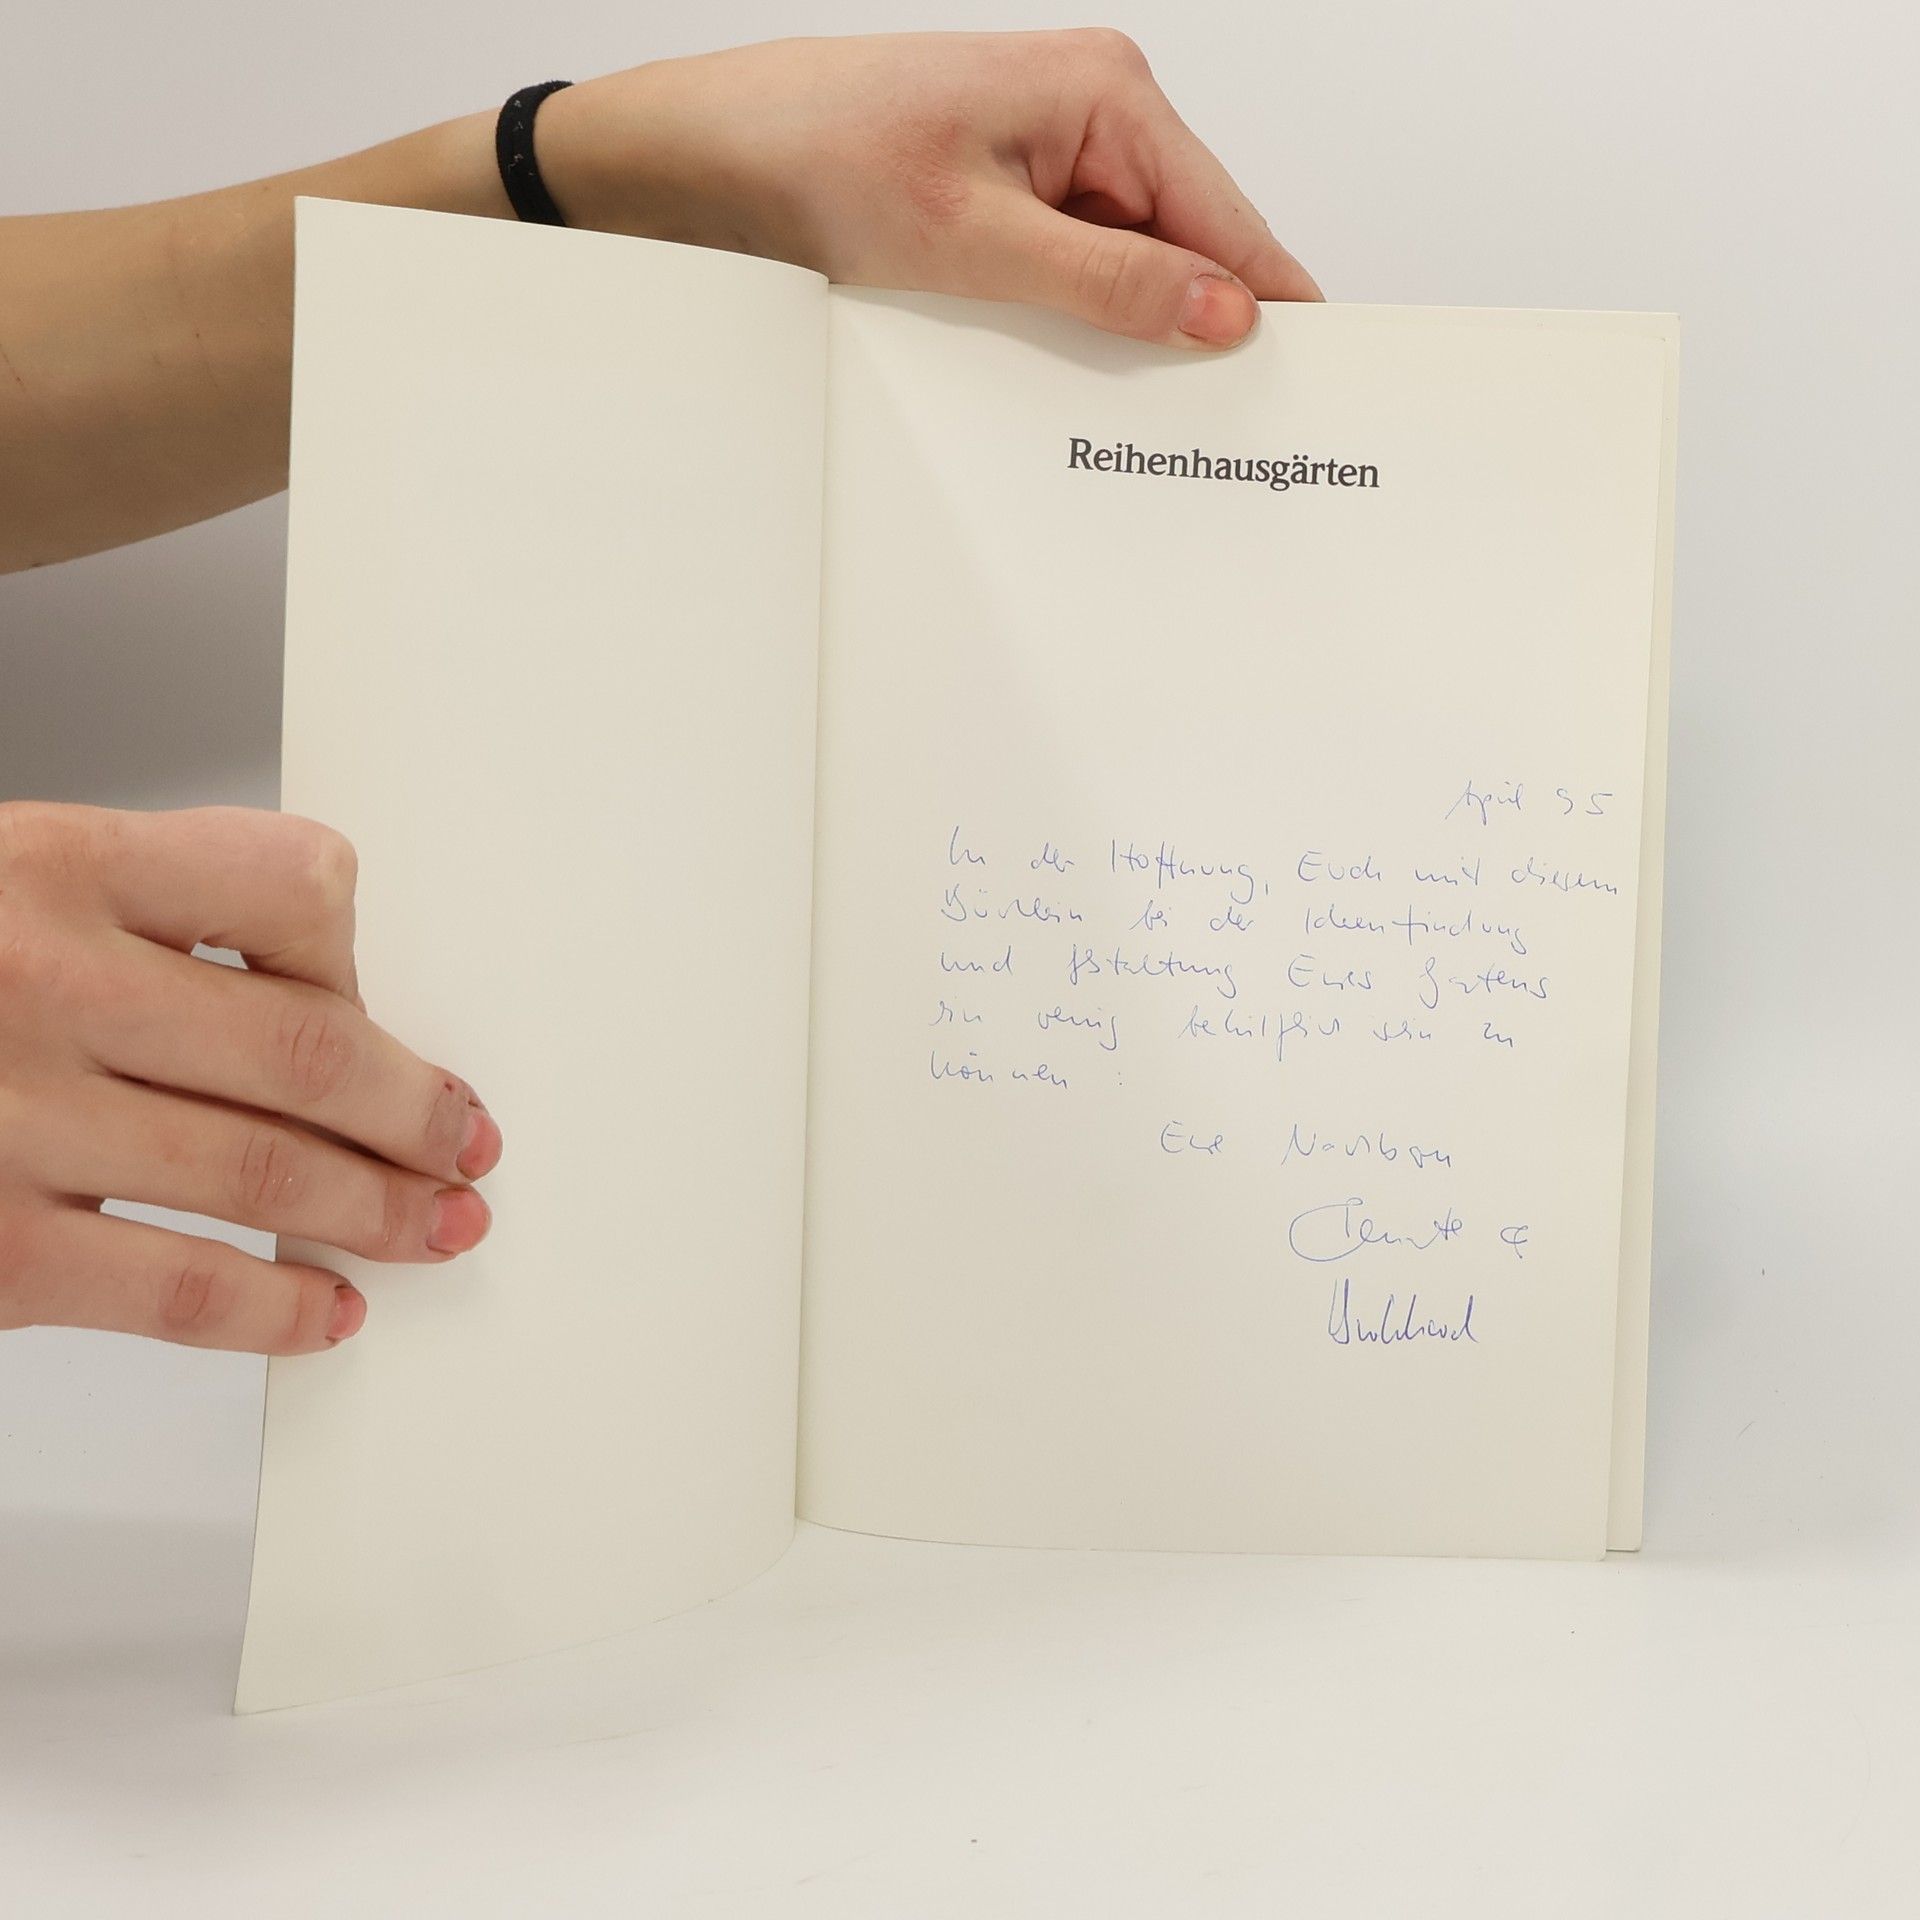 Reihenhausgärten
April 95
In der Hoffnung, Euch mit diesem
Büchlein bei der Ideenfindung
und Gestaltung Eures Gartens
ein wenig behilflich sein zu
können :
Eure Nachbarn
Renate &
Burkhard